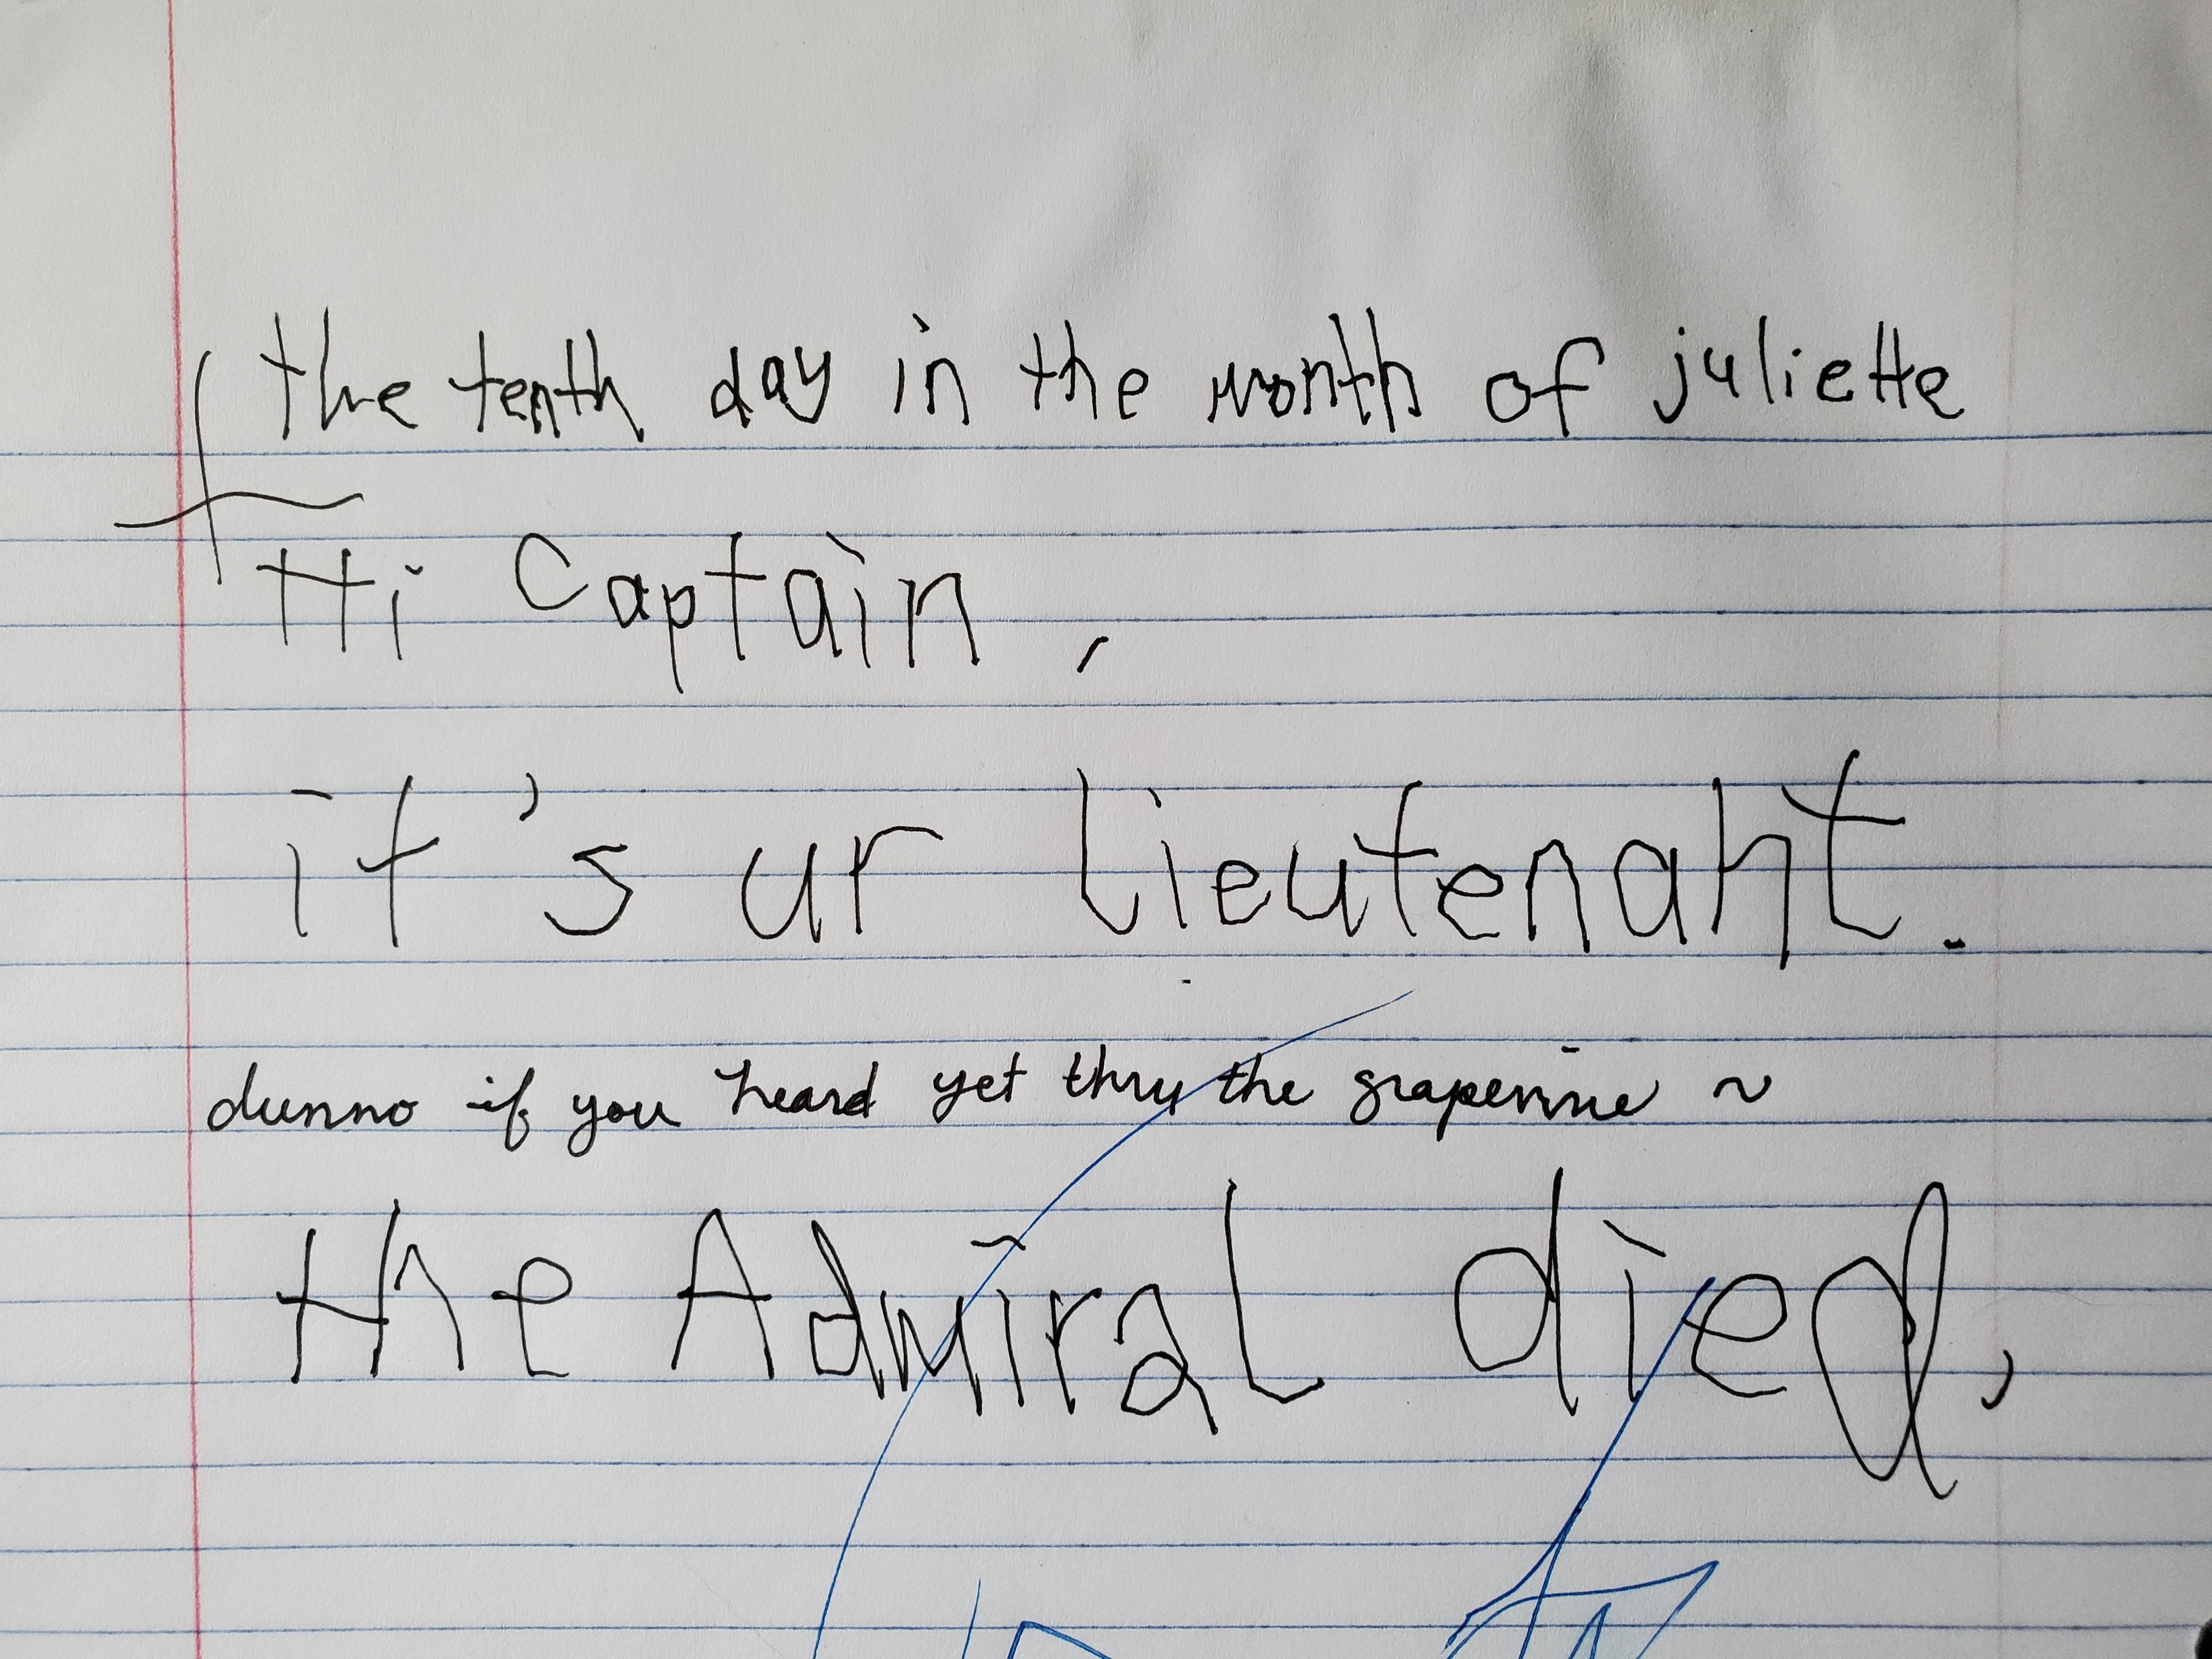 the tenth day in the month of juliette
Hi Captain,
it's ur Lieutenant.
dunno if you heard yet thru the grapevine n
the Admiral died,